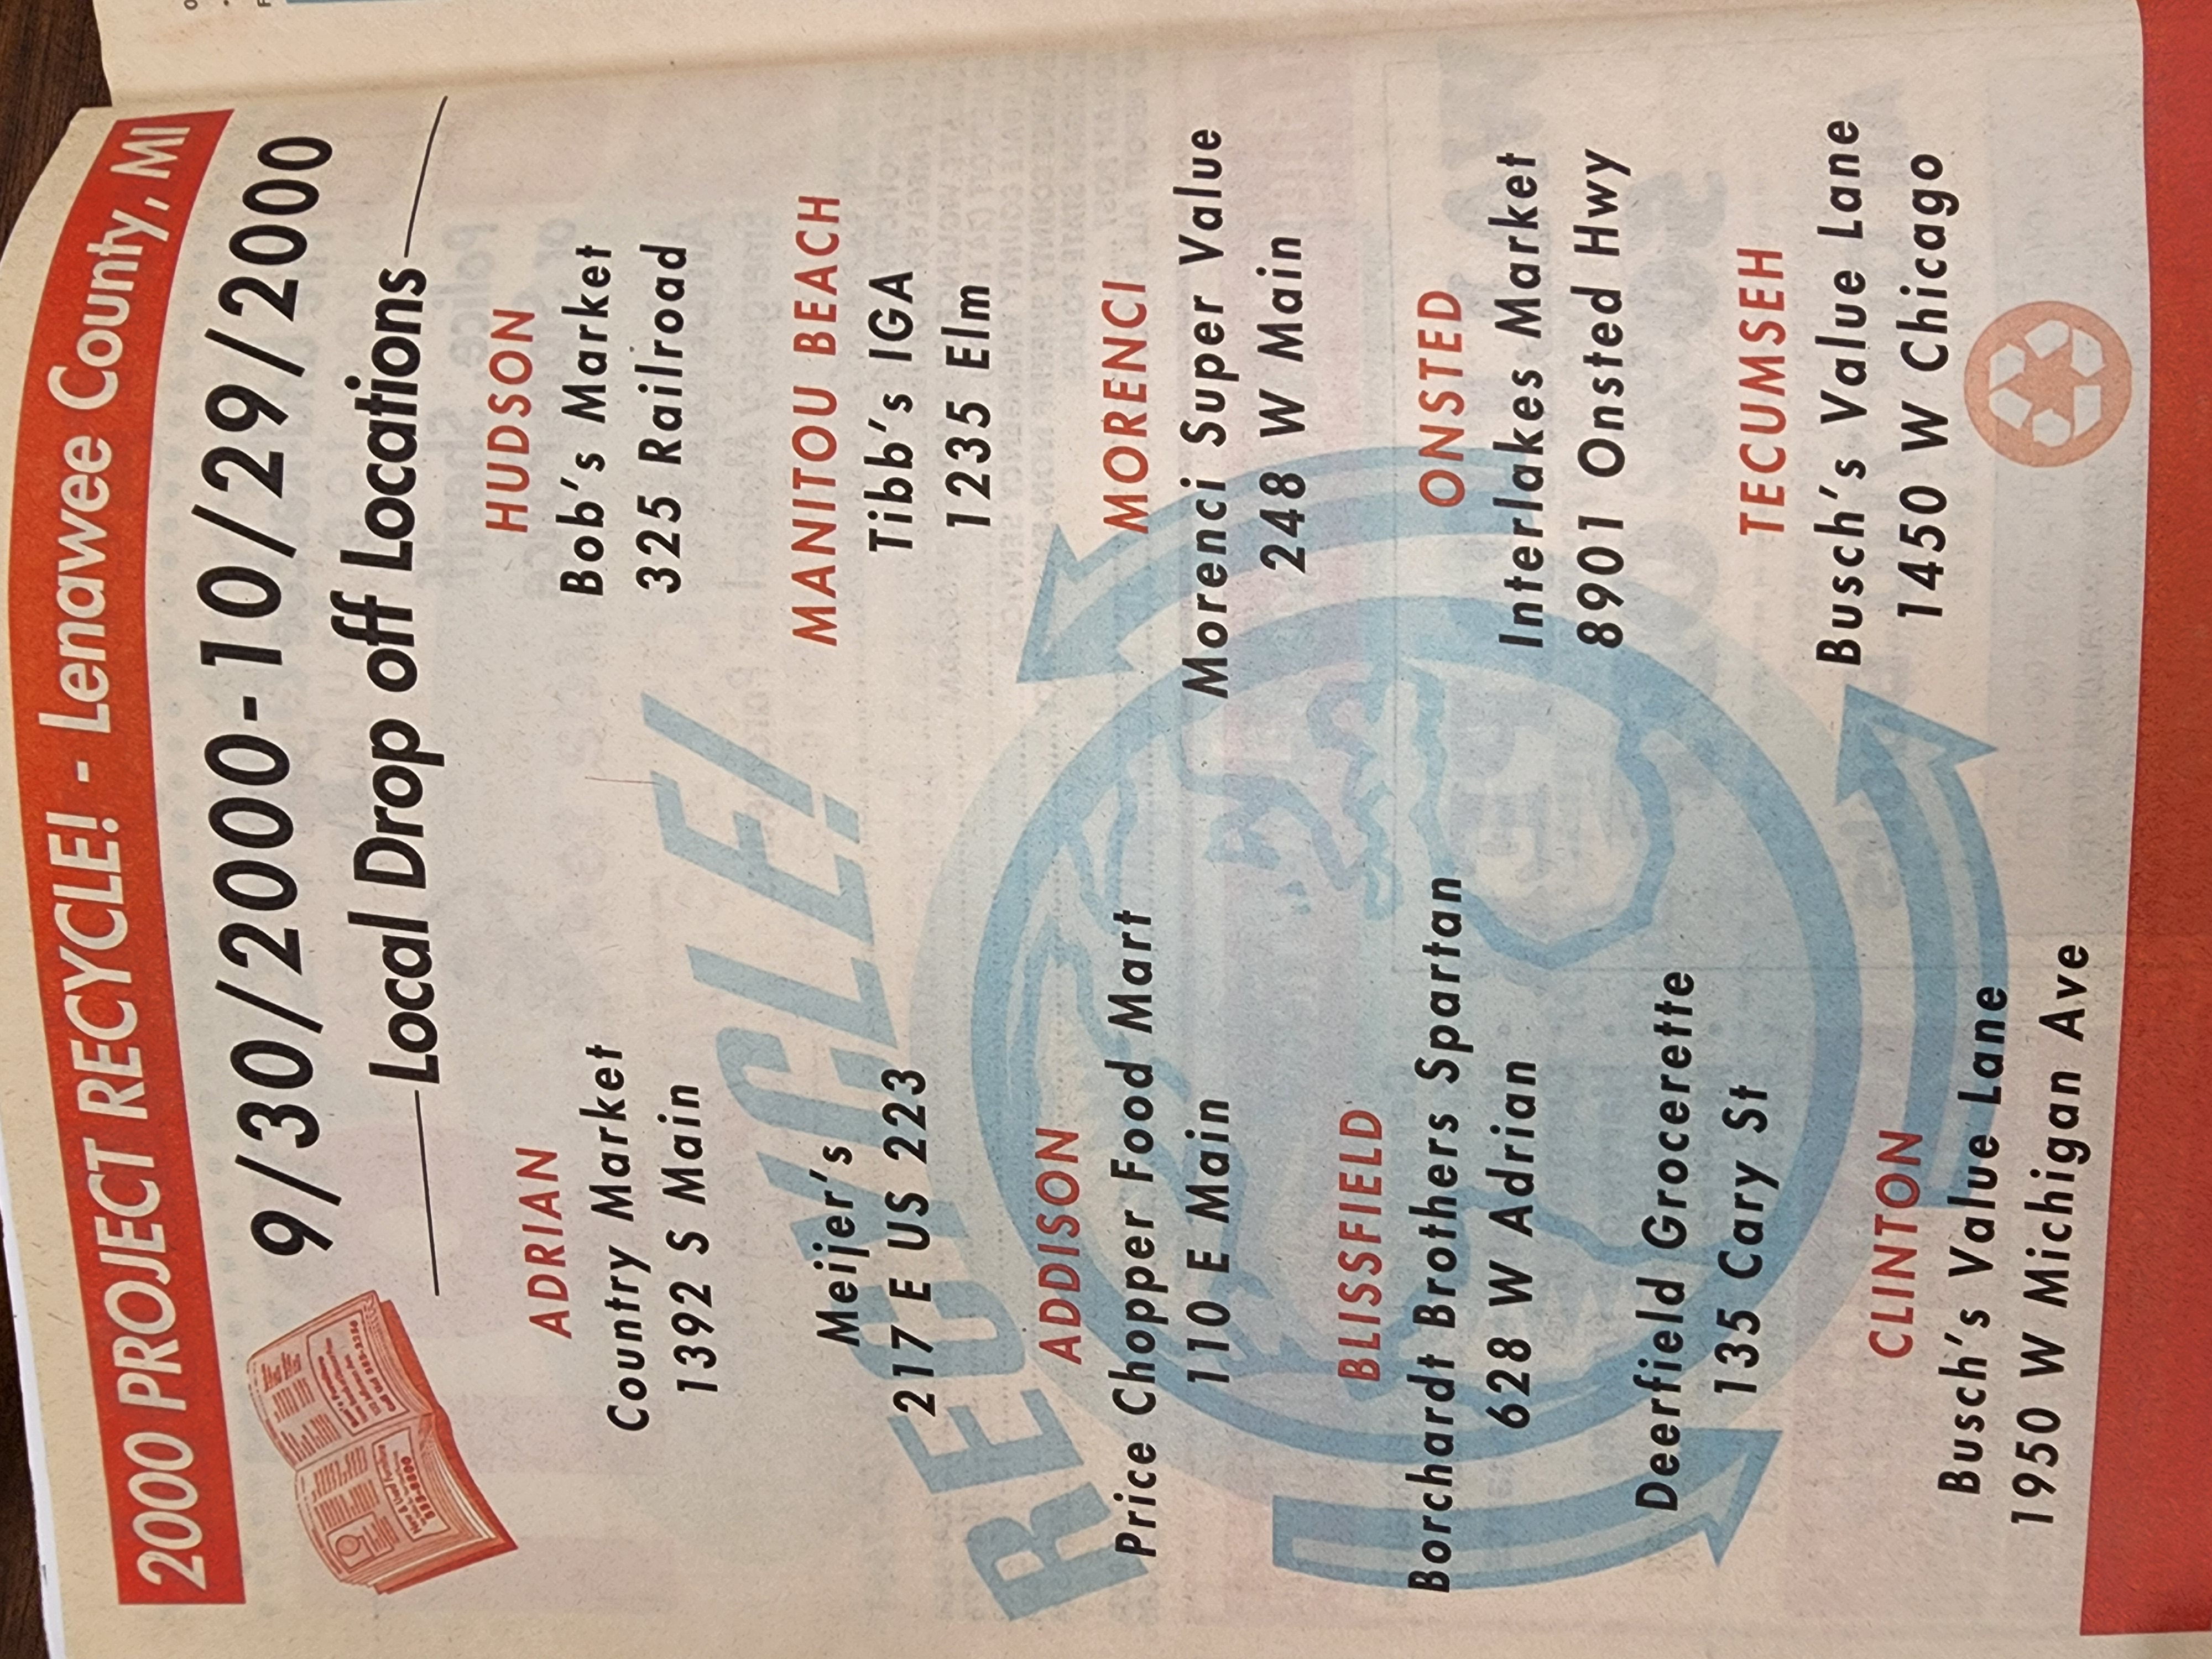 2000 PROJECT RECYCLE! - Lenawee County, MI
9/30/2000-10/29/2000
Local Drop off Locations
RECYCLE!
ADRIAN
Country Market
1392 S Main
Meijer's
217 E US 223
ADDISON
Price Chopper Food Mart
110 E Main
BLISSFIELD
Borchardt Brothers Spartan
628 W Adrian
Deerfield Grocerette
135 Cary St
CLINTON
Busch's Value Lane
1950 W Michigan Ave
HUDSON
Bob's Market
325 Railroad
MANITOU BEACH
Tibb's IGA
1235 Elm
MORENCI
Morenci Super Value
248 W Main
ONSTED
Interlakes Market
8901 Onsted Hwy
TECUMSEH
Busch's Value Lane
1450 W Chicago